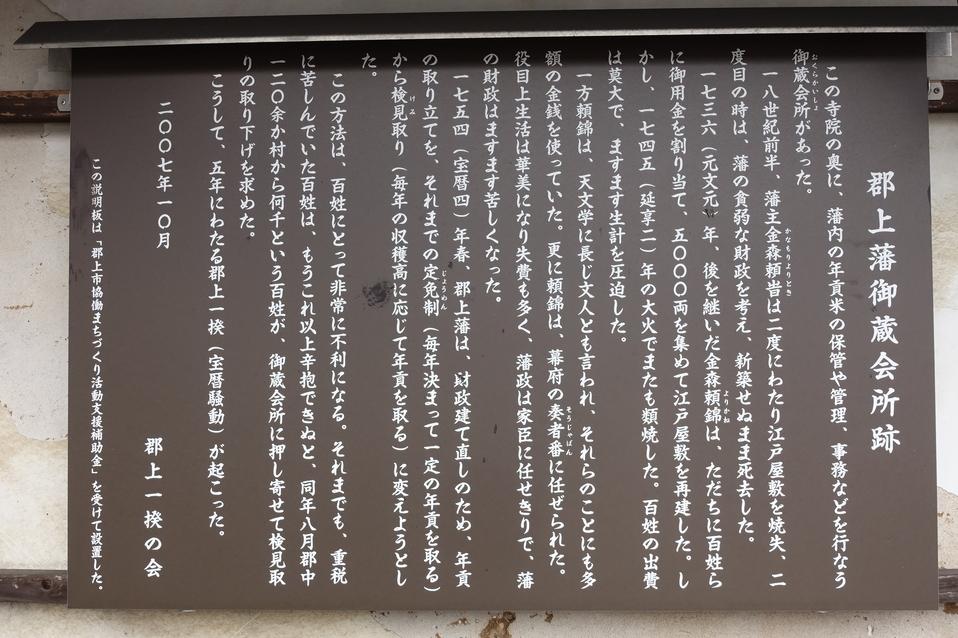 郡上藩御蔵会所跡
この寺院の奥に、藩内の年貢米の保管や管理、事務などを行なう
御蔵会所があった。
おくらかいしょ
一八世紀前半、藩主金森頼旹は二度にわたり江戸屋敷を焼失、二
かなもりよりとき
度目の時は、藩の貧弱な財政を考え、新築せぬまま死去した。
一七三六（元文元）年、後を継いだ金森頼錦は、ただちに百姓ら
よりかね
に御用金を割り当て、五〇〇〇両を集めて江戸屋敷を再建した。し
かし、一七四五（延享二）年の大火でまたも類焼した。百姓の出費
は莫大で、ますます生計を圧迫した。
一方頼錦は、天文学に長じ文人とも言われ、それらのことにも多
額の金銭を使っていた。更に頼錦は、幕府の奏者番に任ぜられた。
そうじゃばん
役目上生活は華美になり失費も多く、藩政は家臣に任せきりで、藩
の財政はますます苦しくなった。
一七五四（宝暦四）年春、郡上藩は、財政建て直しのため、年貢
の取り立てを、それまでの定免制（毎年決まって一定の年貢を取る）
じょうめん
から検見取り（毎年の収穫高に応じて年貢を取る）に変えようとし
けみ
た。
この方法は、百姓にとって非常に不利になる。それまでも、重税
に苦しんでいた百姓は、もうこれ以上辛抱できぬと、同年八月郡中
一二〇余か村から何千という百姓が、御蔵会所に押し寄せて検見取
りの取り下げを求めた。
こうして、五年にわたる郡上一揆（宝暦騒動）が起こった。
二〇〇七年一〇月
郡上一揆の会
この説明板は「郡上市協働まちづくり活動支援補助金」を受けて設置した。